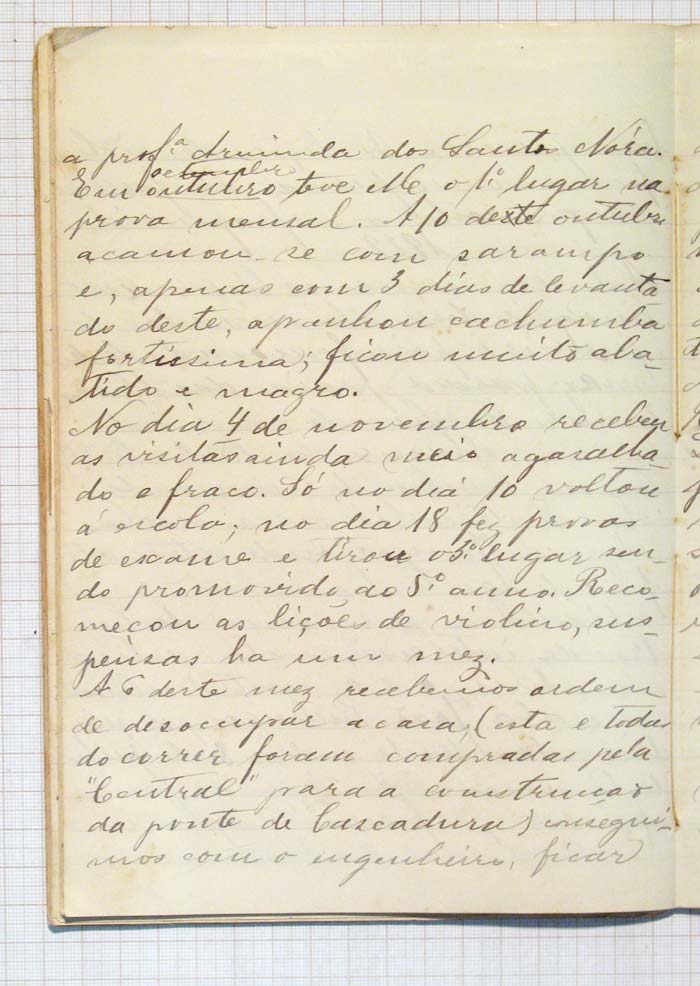 a prof.ª Arminda dos Santos Nóra.
setembro
Em outubro teve elle o 1º lugar na
prova mensal. A 10 deste outubro
acamou-se com sarampo
e, apenas com 3 dias de levanta
do deste, apanhou cachumba
fortissima; ficou muito aba-
tido e magro.
No dia 4 de novembro recebeu
as visitas ainda meio agasalha
do e fraco. Só no dia 10 voltou
á escola; no dia 18 fez provas
de exame e tirou o 3º lugar sen-
do promovido ao 5º anno. Reco-
meçou as lições de violino, sus
pensas ha um mez.
A 6 deste mez recebemos ordem
de desoccupar a casa, (esta e todas
do correr foram compradas pela
"Central" para a construcção
da ponte de Cascadura) consegui-
mos com o engenheiro, ficar